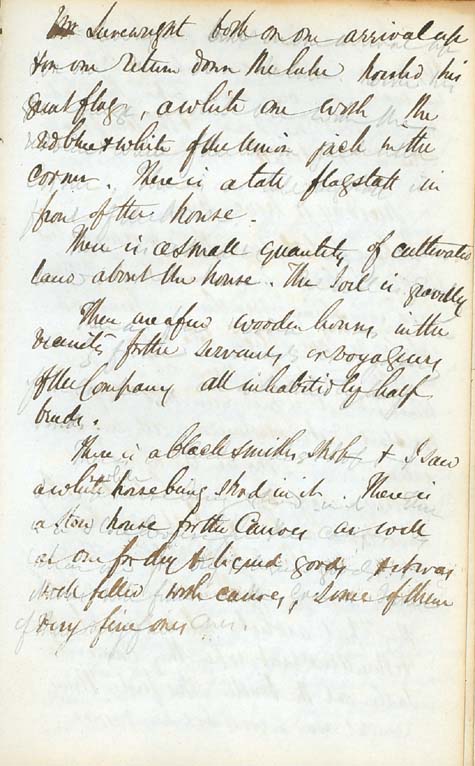 Mr Sivewright both on our arrival up
& on our return down the lake hoisted his
great flag, a white one with the
red blue & white of the Union jack in the
corner. There is a tall flagstaff in
front of the house.
There is a small quantity of cultivated
land about the house. The Soil is gravelly
There are a few wooden houses in the
vicinity for the servants or voyageurs
of the Company all inhabited by half
breeds.
There is a blacksmiths shop & I saw
a white horse being shod in it. There is
a store house for the Canoes as well
as one for dry & liquid goods & it was
well filled with canoes, some of them
very fine ones.